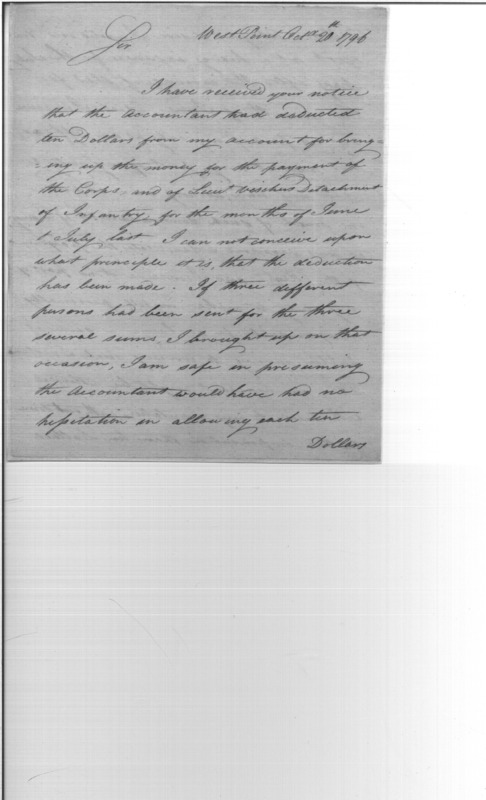 West Point Octr. 20th 1796
Sir
I have received your notice
that the Accountant had deducted
ten Dollars from my account for bring=
=ing up the money for the payment of
the Corps, and of Lieut Visschers Detachment
of Infantry, for the months of June
& July last. I can not conceive upon
what principle it is, that the deduction
has been made. If three different
persons had been sent for the three
several sums I brought up on that
occasion, I am safe in presuming
the Accountant would have had no
hesitation in allowing each ten
Dollars